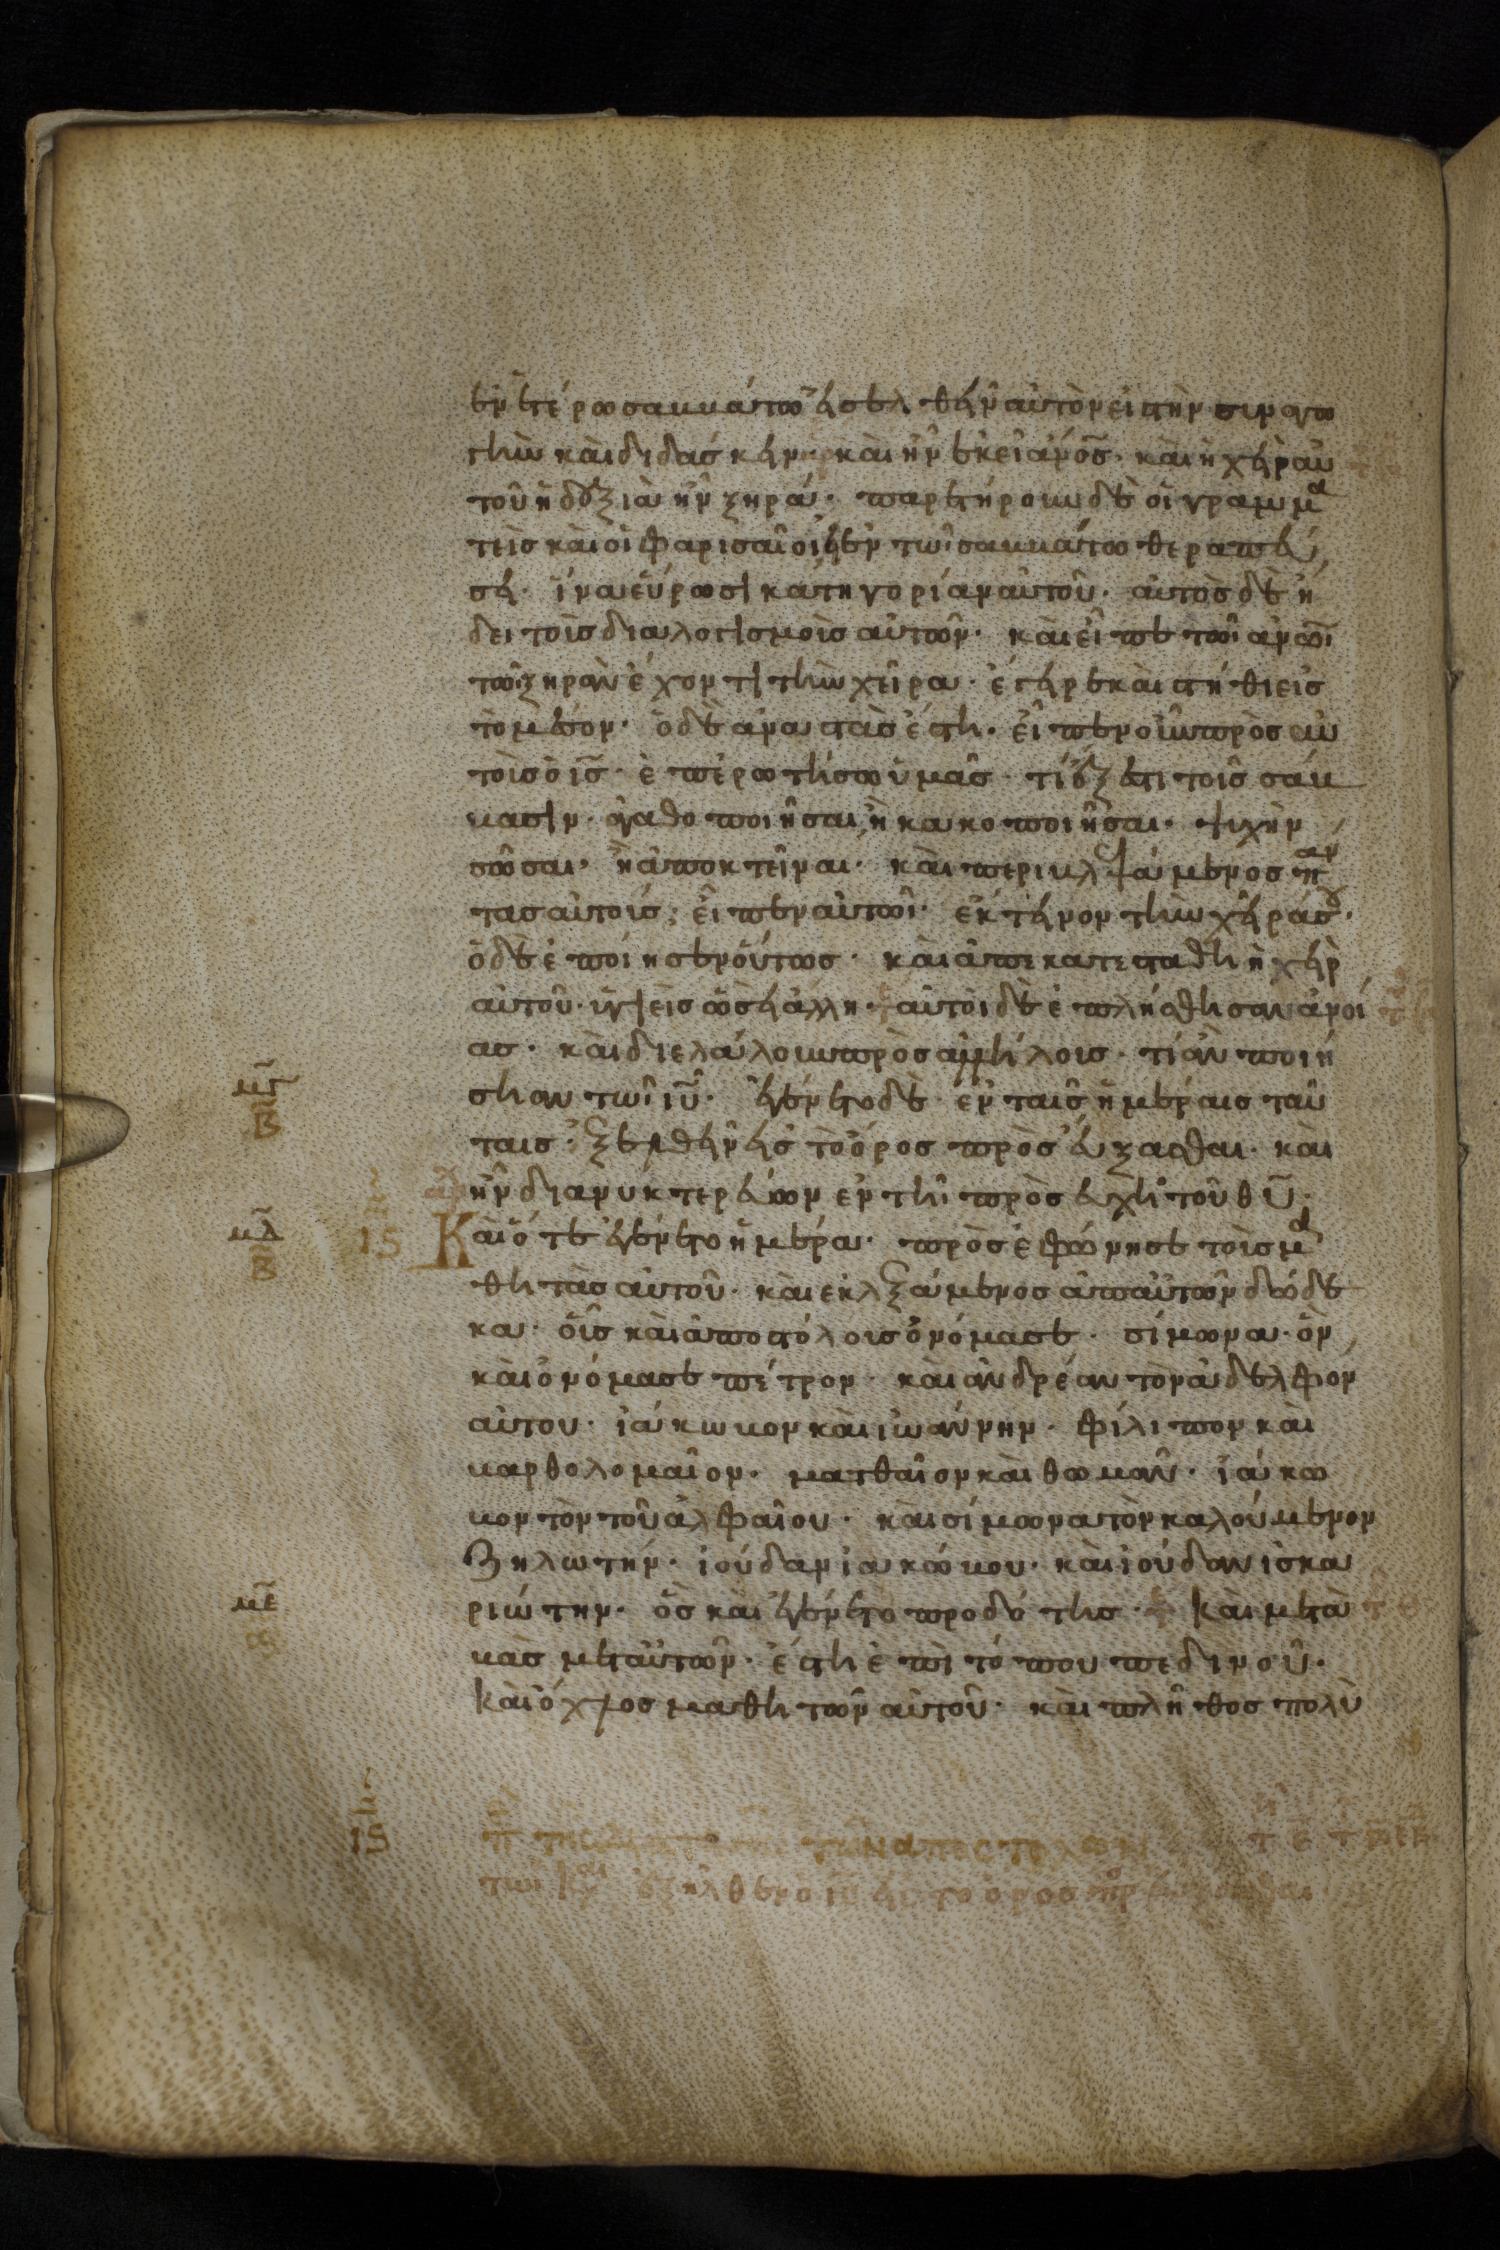 ἐν ἑτέρω σαββάτω εἰσελθεῖν αὐτὸν εἰ τὴν συναγω
γὴν καὶ διδάσκειν· καὶ ἦν ἐκεῖ ἄνο̅ς̅· καὶ ἡ χεὶρ αὐ
τοῦ ἡ δεξιὰ ἦν ξηρά· παρετήρουν δὲ οἱ γραμμα
τεῖς καὶ οἱ φαρισαῖοι, εἰ ἐν τῶι σαββάτω θεραπεύ
σει· ἵνα εὕρωσι κατηγορίαν αὐτοῦ· αὐτὸς δὲ ἤ
δει τοῖς διαλογισμοῖς αὐτῶν· καὶ εἶπε τῶι ἀνω̅ι̅
τῶι ξηρὰν ἔχοντι τὴν χεῖρα· ἔγειρε καὶ στήθι εἰς
τὸ μέσον· ὁ δὲ ἀναστὰς ἔστη· εἶπεν οὖν πρὸς αὐ
τοὺς ὁ ι̅ς̅· ἐπερωτήσω ὑμᾶς· τί ἔξεστι τοῖς σάβ
βασιν· ἀγαθοποιῆσαι, ἢ κακοποιῆσαι· ψυχὴν
σῶσαι· ἢ ἀποκτεῖναι· καὶ περιβλεψάμενος παν
τας αὐτοὺς, εἶπεν αὐτῶι· ἔκτεινον τὴν χεῖρά σου·
ὁ δὲ ἐποίησεν οὕτως· καὶ ἀπεκατεστάθη ἡ χεὶρ
αὐτοῦ· ὑγιεὶς ὡσεὶ ἄλλη· αὐτοὶ δὲ ἐπλήσθησαν ἀνοί
ας· καὶ διελάλουν πρὸς ἀλλήλους· τί ἂν ποιή
σειαν τῶι ι̅υ̅· ἐγένετο δὲ ἐν ταῖς ἡμέραις ταύ
ταις· ἐξελθεῖν εἰς τὸ ὄρος προσεύξασθαι· καὶ
ἦν διανυκτερεύων ἐν τῆι προσευχῆι τοῦ θ̅υ̅·
Καὶ ὅτε ἐγένετο ἡμέρα· προσεφώνησε τοὺς μα
θητὰς αὐτοῦ· καὶ ἐκλεξάμενος ἀπ' αὐτῶν δώδε
κα· οὓς καὶ ἀποστόλους ὀνόμασε· σίμωνα· ὃν
καὶ ὀνόμασε πέτρον· καὶ ἀνδρέαν τὸν ἀδελφὸν
αὐτου· ἰάκωβον καὶ ἰωάννην· φίλιππον καὶ
βαρθολομαῖον· ματθαῖον καὶ θωμᾶν· ἰάκω
βον τὸν τοῦ ἀλφαίου· καὶ σίμωνα τὸν καλούμενον
Ζηλωτήν· ἰούδαν ἰακώβου· καὶ ἰούδαν ἰσκα
ριώτην· ὃς καὶ ἐγένετο προδότης· καὶ μετα
βὰς μετ' αὐτῶν· ἔστη ἐπὶ τόπου πεδινοῦ·
καὶ ὄχλος μαθητῶν αὐτοῦ· καὶ πλῆθος πολὺ
μγ̅
Β
μδ̅
Β
ις
με̅
ις
τῶν ἀποστόλων
τῶι καιρῶ ἐξῆλθεν ὁ ι̅ς̅ εἰς τὸ ὄρος